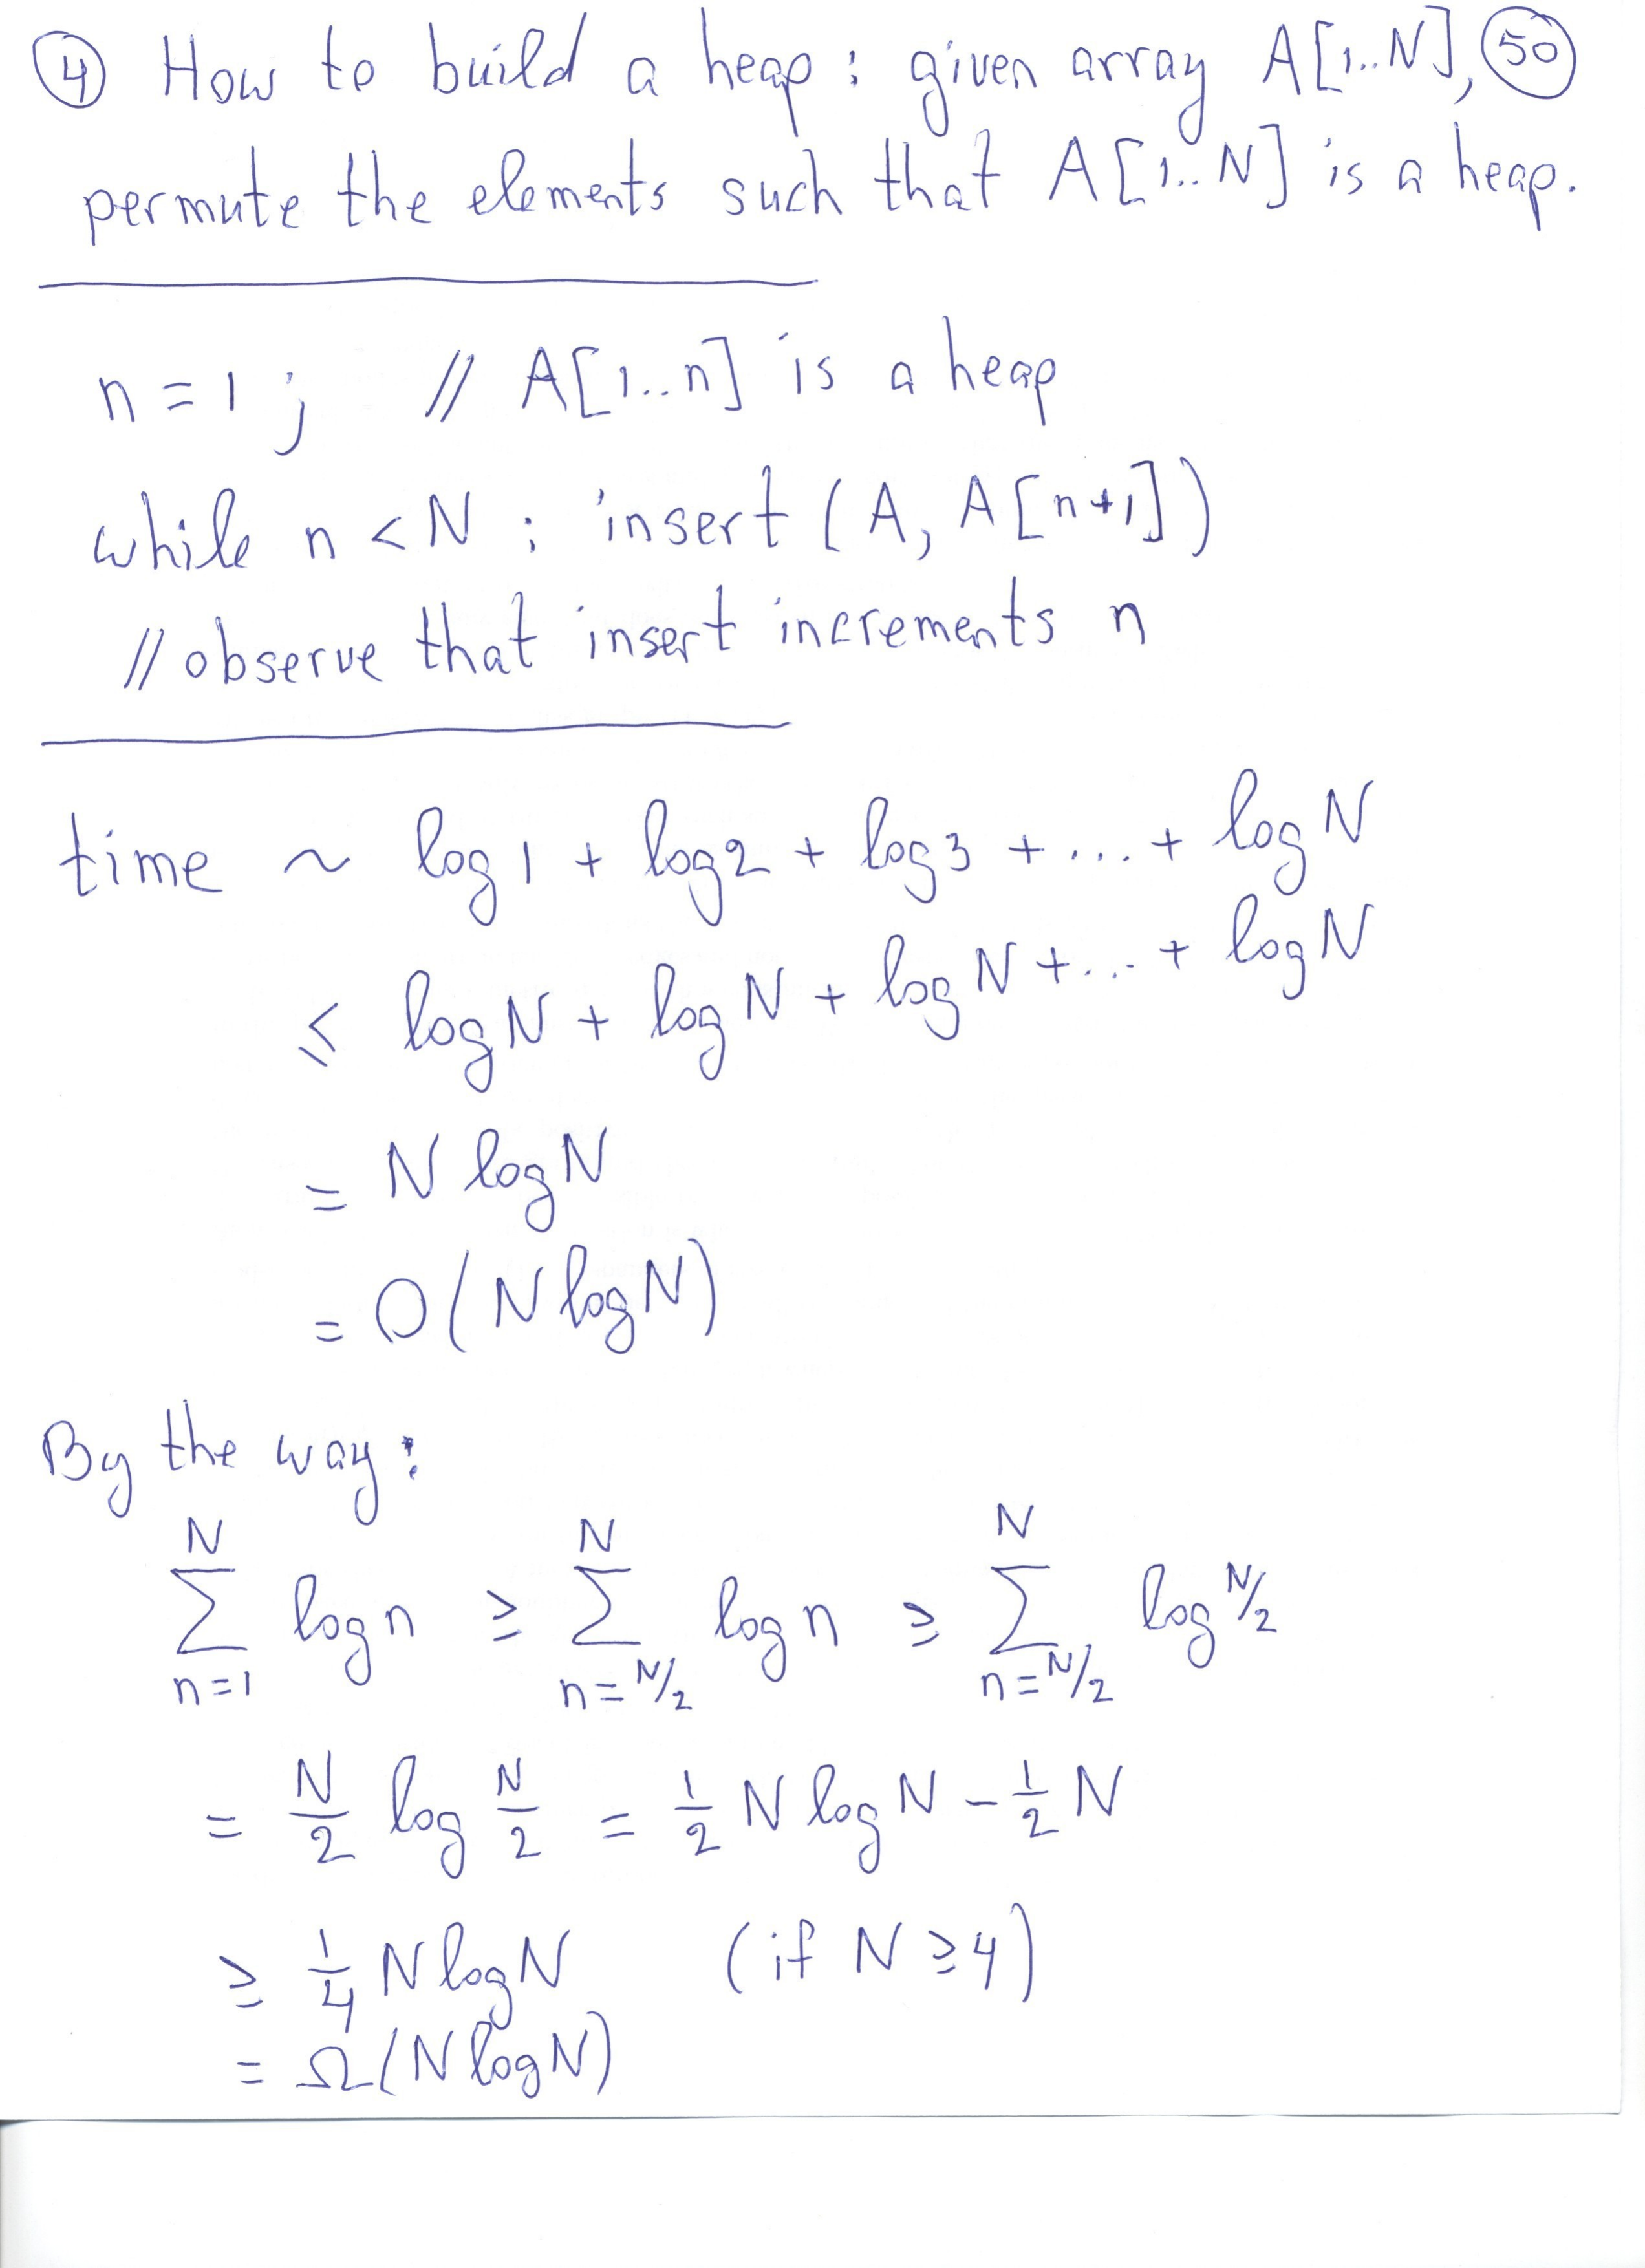 ④ How to build a heap : given array A[1..N], ㊿
permute the elements such that A[1..N] is a heap.
n = 1 ; // A[1..n] is a heap
while n < N : insert (A, A[n+1])
// observe that insert increments n
time ~ log 1 + log 2 + log 3 + ... + log N
≤ log N + log N + log N + ... + log N
= N log N
= O(N log N)
By the way:
∑_{n=1}^{N} log n ≥ ∑_{n=N/2}^{N} log n ≥ ∑_{n=N/2}^{N} log N/2
= N/2 log N/2 = 1/2 N log N - 1/2 N
≥ 1/4 N log N (if N ≥ 4)
= Ω(N log N)